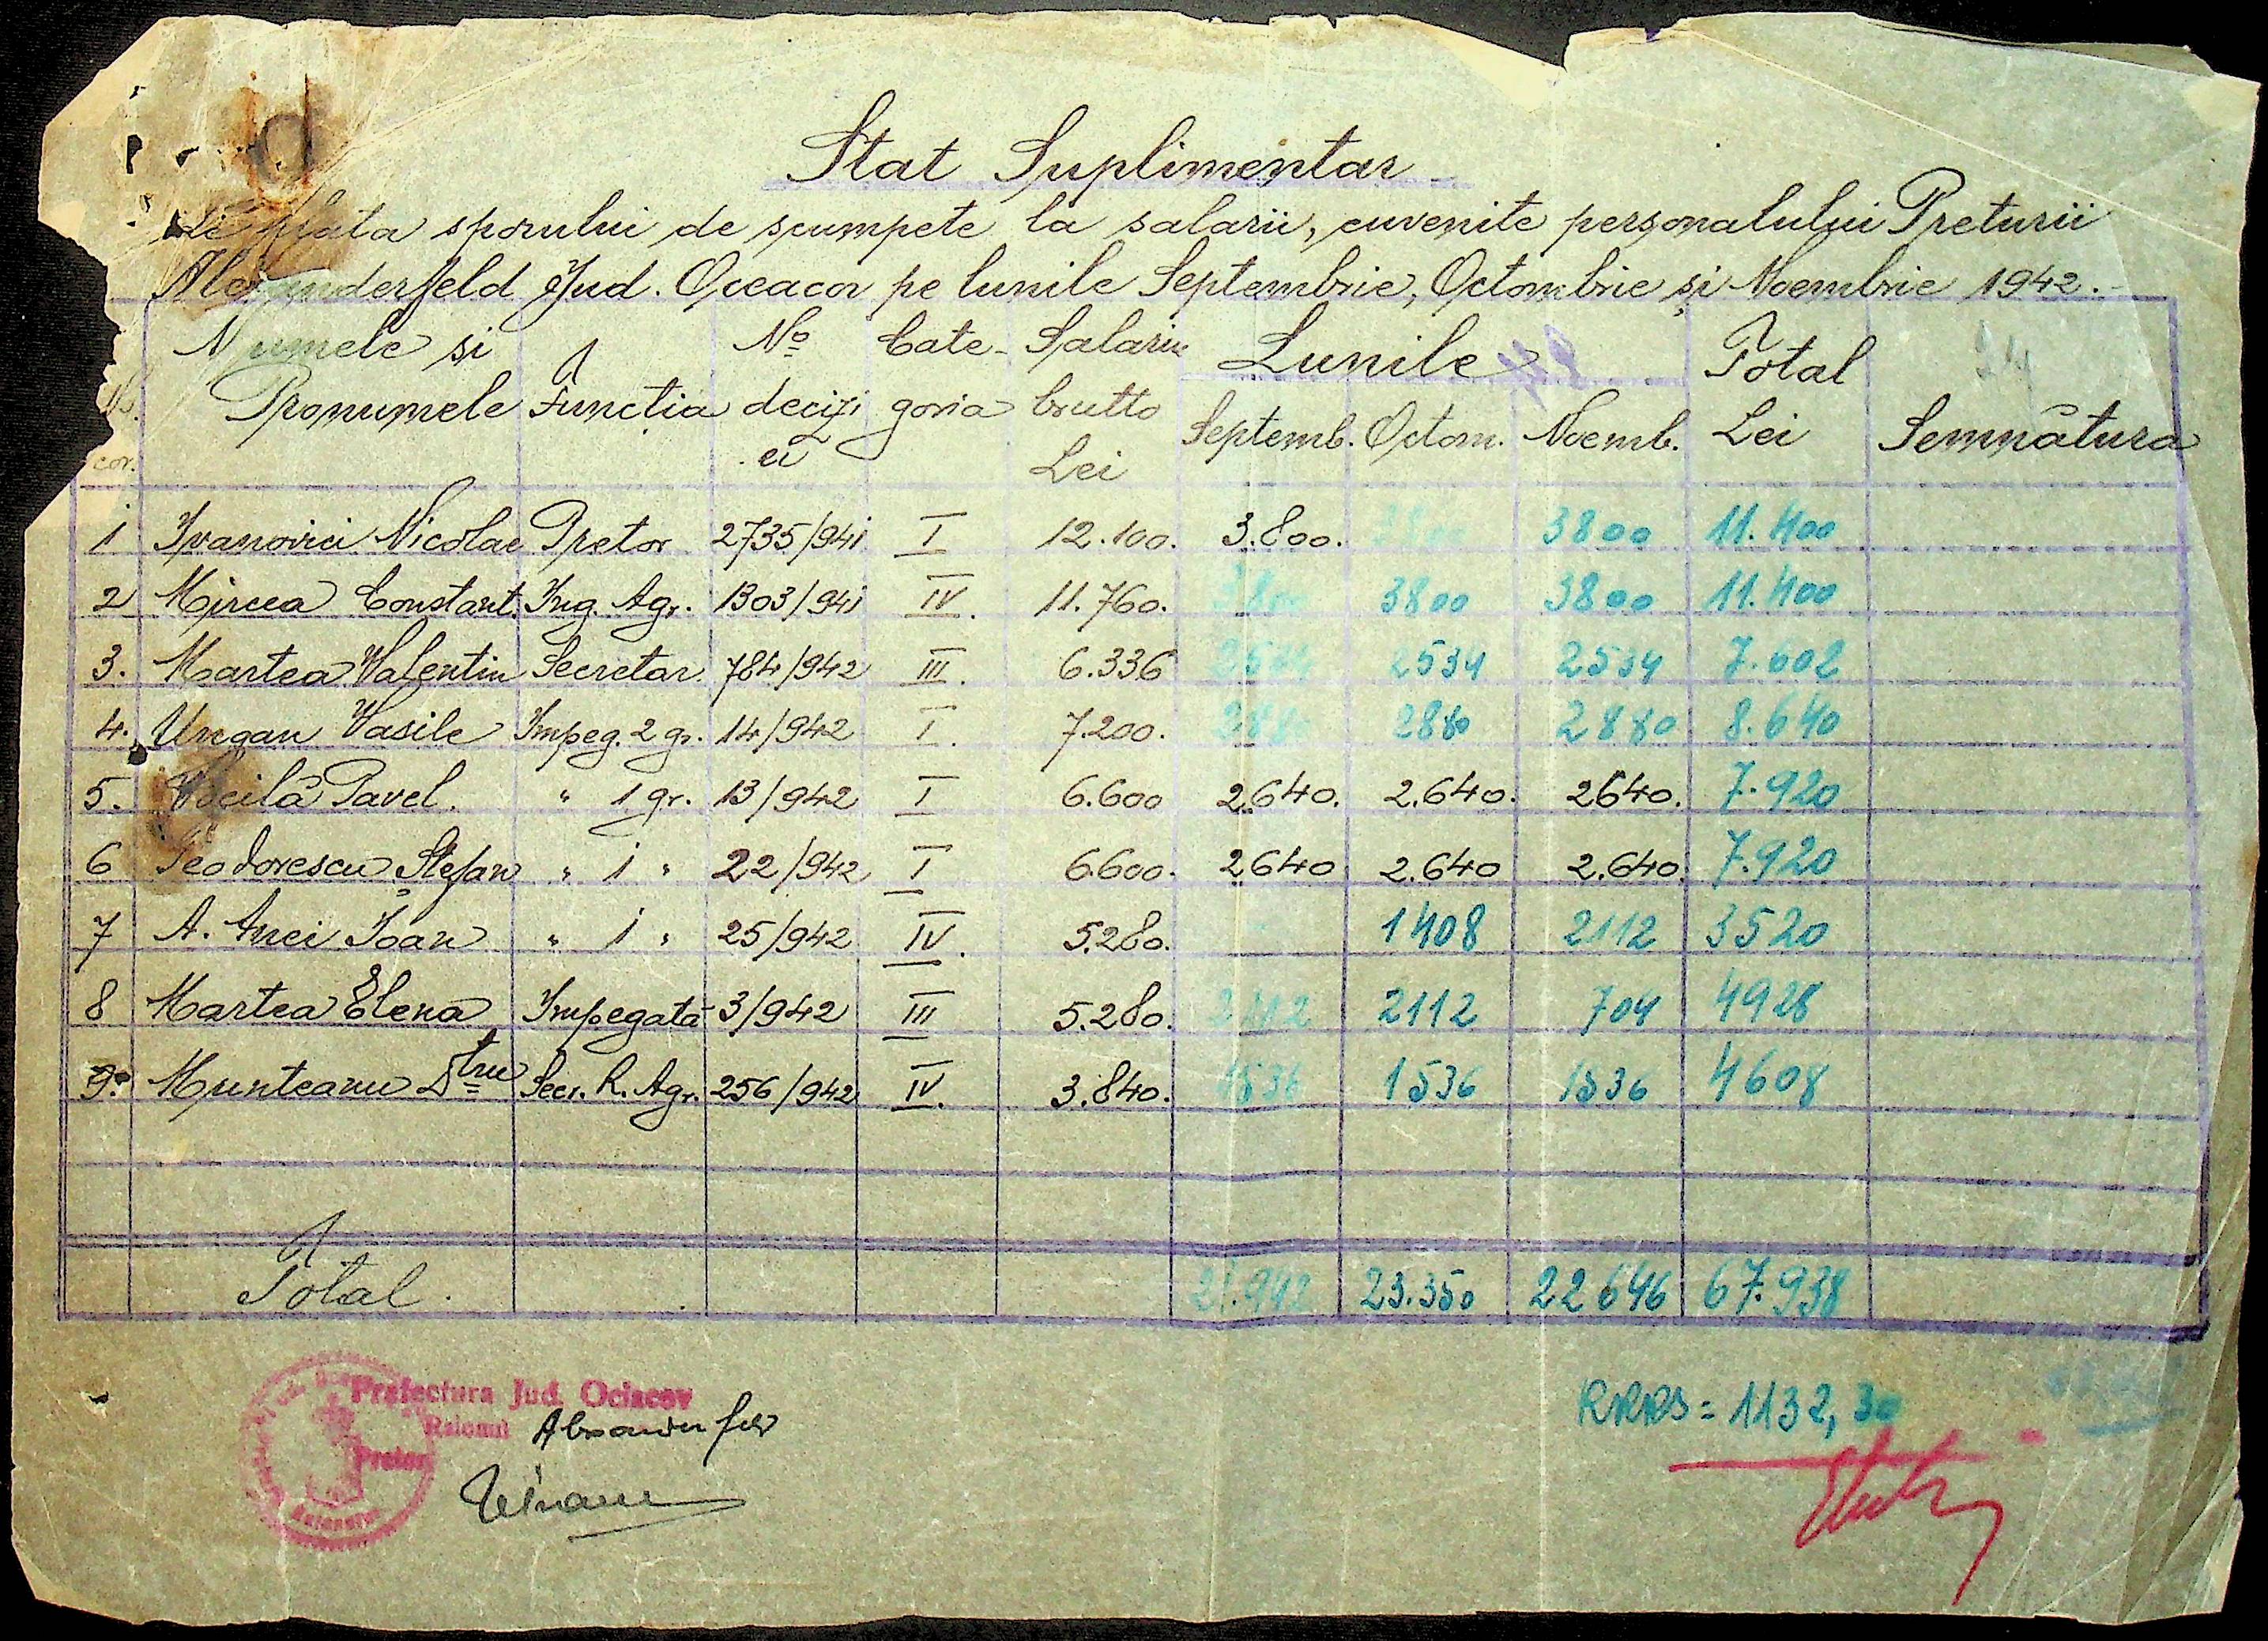 Stat Suplimentar
de plata sporului de scumpete la salarii, cuvenite personalului Preturii
Alexanderfeld Jud. Oceacov pe lunile Septembrie, Octombrie și Noembrie 1942.-
No. cor. Numele si Pronumele Funcția No deciziei Categoria Salariu brutto Lei Lunile Septemb. Octom. Noemb. Total Lei Semnătura
1 Ivanovici Nicolae Pretor 2735/941 I 12.100. 3.800. 38 3800 11.400
2 Mircea Constant. Ing. Agr. 1303/941 IV. 11.760. 3800 3800 3800 11.400
3. Martea Valentin Secretar. 784/942 III. 6.336 2534 2534 2534 7.602
4. Ungan Vasile Impeg. 2 gr. 14/942 I. 7.200. 2880 2880 2880 8.640
5. Voeilă Pavel. " 1 gr. 13/942 I 6.600 2.640. 2.640. 2640. 7.920
6 Teodorescu Ștefan " 1 " 22/942 I 6.600. 2640 2.640 2.640. 7.920
7 A. Anei Ioan " 1 " 25/942 IV. 5.280. - 1408 2112 3520
8 Martea Elena Impegată 3/942 III 5.280. 2112 2112 704 4928
9. Munteanu Dtru Secr. R. Agr. 256/942 IV. 3.840. 1536 1536 1536 4608
Total. 21.942 23.350 22646 67.938
Prefectura Jud. Ociacov
Raionul
Pretor
RRRS = 1132,30